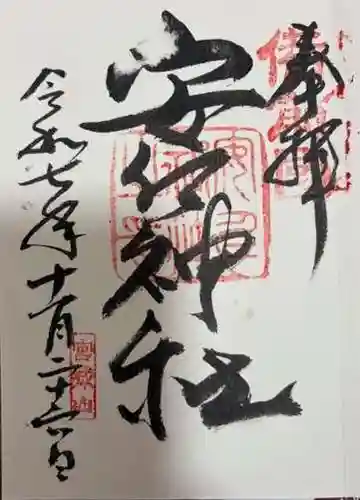 奉拝
安仁神社
令和七年十一月二十六日